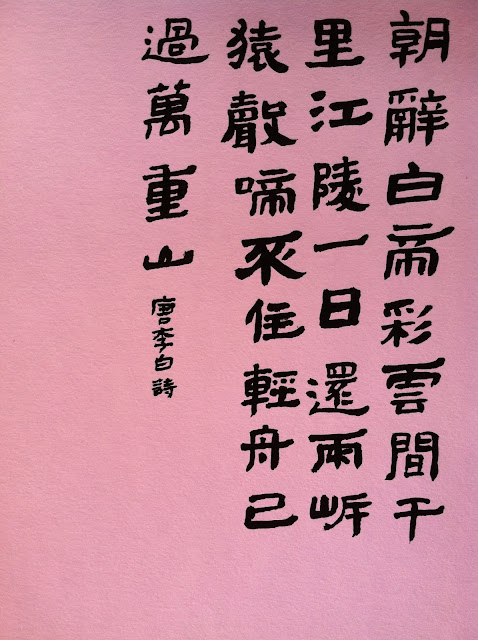 朝辭白帝彩雲間千
里江陵一日還兩岸
猿聲啼不住輕舟已
過萬重山 唐李白詩